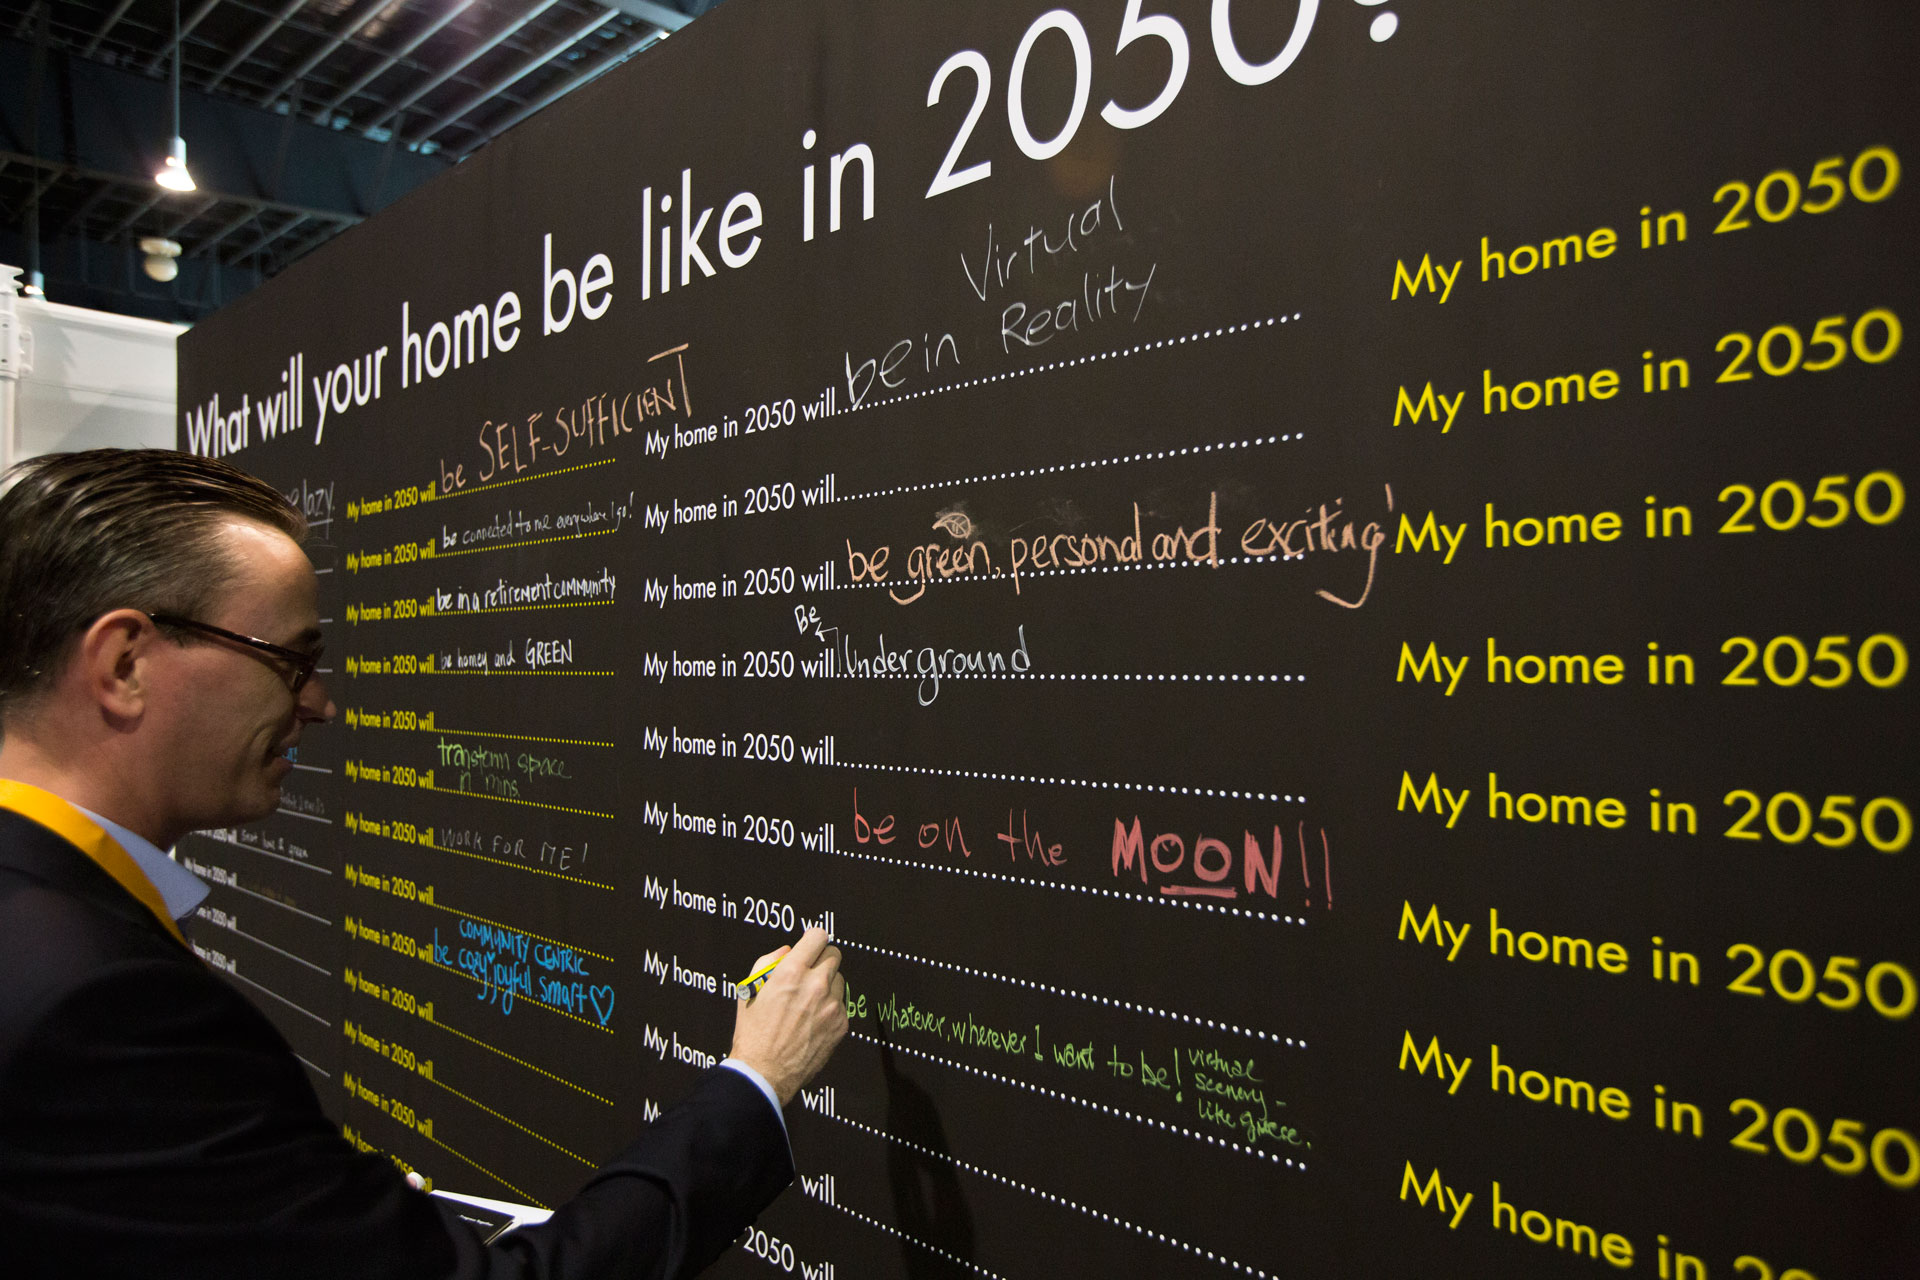 What will your home be like in 2050?
lazy.
smart home & green
My home in 2050 will be SELF-SUFFICIENT
My home in 2050 will be connected to me everywhere I go!
My home in 2050 will be in a retirement community
My home in 2050 will be homey and GREEN
My home in 2050 will
My home in 2050 will transform space
in mins.
My home in 2050 will WORK FOR ME!
My home in 2050 will
COMMUNITY CENTRIC
My home in 2050 will be cozy, joyful smart ♡
My home in 2050 will
My home in 2050 will
My home in 2050 will
My home in 2050 will
Virtual
My home in 2050 will be in Reality
My home in 2050 will
My home in 2050 will be green, personal and exciting!
Be
My home in 2050 will Underground
My home in 2050 will
My home in 2050 will be on the MOON!!
My home in 2050 will
My home in
My home be whatever, wherever I want to be! virtual
scenery -
like greece.
will
will
2050 will
My home in 2050
My home in 2050
My home in 2050
My home in 2050
My home in 2050
My home in 2050
My home in 2050
My home in 2050